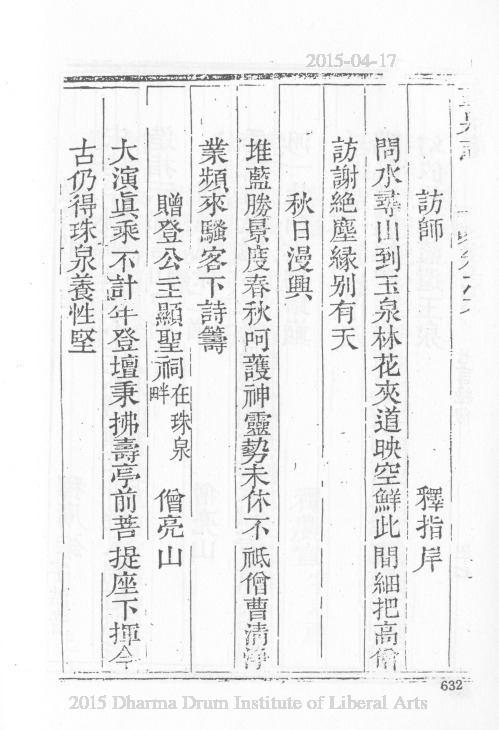 2015-04-17
訪師　釋指岸
問水尋山到玉泉林花夾道映空鮮此間細把高僧
訪謝絶塵緣别有天
秋日漫興
堆藍勝景度春秋呵護神靈勢未休不祇僧曹清淨
業頻來騷客下詩籌
贈登公主顯聖祠在珠泉畔　僧亮山
大演眞乘不計年登壇秉拂壽亭前菩提座下揮今
古仍得珠泉養性堅
632
2015 Dharma Drum Institute of Liberal Arts